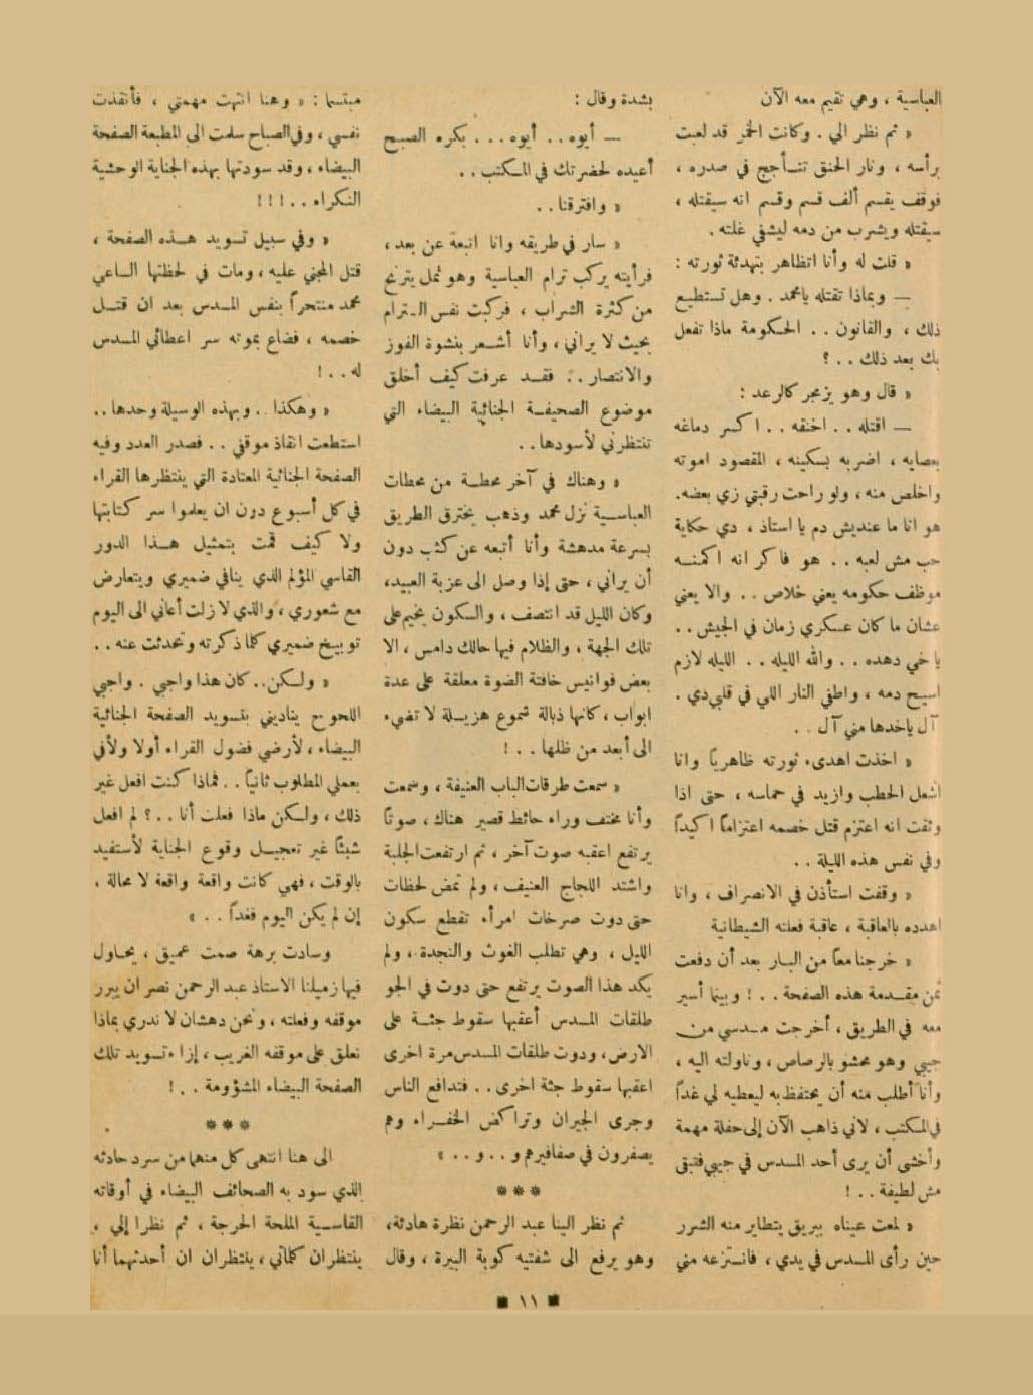 العباسية ، وهي تقيم معه الآن
« ثم نظر الي . وكانت الخمر قد لعبت
برأسه ، ونار الحنق تتأجج في صدره ،
فوقف يقسم ألف قسم وقسم انه سيقتله ،
سيقتله ويشرب من دمه ليشفي غلته .
« قلت له وأنا اتظاهر بتهدئة ثورته :
— وبماذا تقتله يامحمد . وهل تستطيع
ذلك ، والقانون . . الحكومة ماذا تفعل
بك بعد ذلك . . ؟
« قال وهو يزمجر كالرعد :
— اقتله . . اخنقه . . اكسر دماغه
بعصايه ، اضربه بسكينه ، المقصود اموته
واخلص منه ، ولو راحت رقبتي زي بعضه .
هو انا ما عنديش دم يا استاذ ، دي حكاية
حب مش لعبه . . هو فاكر انه اكمنه
موظف حكومه يعني خلاص . . والا يعني
عشان ما كان عسكري زمان في الجيش . .
ياخي دهده . . والله الليله . . الليله لازم
اسيح دمه ، واطفي النار اللي في قلبي دي .
آل ياخدها مني آل . .
« اخذت اهدىء ثورته ظاهرياً وانا
اشعل الحطب وازيد في حماسه ، حتى اذا
وثقت انه اعتزم قتل خصمه اعتزاماً اكيداً
وفي نفس هذه الليلة . .
« وقفت استأذن في الانصراف ، وانا
اهدده بالعاقبة ، عاقبة فعلته الشيطانية
« خرجنا معاً من البار بعد أن دفعت
ثمن مقدمة هذه الصفحة . . ! وبينما أسير
معه في الطريق ، أخرجت مسدسي من
جيبي وهو محشو بالرصاص ، وناولته اليه ،
وأنا أطلب منه أن يحتفظ به ليعطيه لي غداً
في المكتب ، لاني ذاهب الآن إلى حفلة مهمة
وأخشى أن يرى أحد المسدس في جيبي فتبقى
مش لطيفة . . !
« لمعت عيناه ببريق يتطاير منه الشرر
حين رأى المسدس في يدي ، فانتزعه مني
بشدة وقال :
— أيوه . . أيوه . . . بكره الصبح
أعيده لحضرتك في المكتب . .
« وافترقنا . .
« سار في طريقه وانا اتبعه عن بعد ،
فرأيته يركب ترام العباسية وهو ثمل يترنح
من كثرة الشراب ، فركبت نفس الترام
بحيث لا يراني ، وأنا أشعر بنشوة الفوز
والانتصار . . فقد عرفت كيف أخلق
موضوع الصحيفة الجنائية البيضاء التي
تنتظرني لأسودها . .
« وهناك في آخر محطة من محطات
العباسية نزل محمد وذهب يخترق الطريق
بسرعة مدهشة وأنا أتبعه عن كثب دون
أن يراني ، حتى إذا وصل الى عزبة العبيد ،
وكان الليل قد انتصف ، والسكون يخيم على
تلك الجهة ، والظلام فيها حالك دامس ، الا
بعض فوانيس خافتة الضوء معلقة على عدة
ابواب ، كانها ذبالة شموع هزيلة لا تضيء
الى أبعد من ظلها . . !
« سمعت طرقات الباب العنيفة ، وسمعت
وأنا مختف وراء حائط قصير هناك ، صوتاً
يرتفع اعقبه صوت آخر ، ثم ارتفعت الجلبة
واشتد اللجاج العنيف ، ولم تمض لحظات
حتى دوت صرخات امرأة تقطع سكون
الليل ، وهي تطلب الغوث والنجدة ، ولم
يكد هذا الصوت يرتفع حتى دوت في الجو
طلقات المسدس أعقبها سقوط جثة على
الارض ، ودوت طلقات المسدس مرة اخرى
اعقبها سقوط جثة اخرى . . فتدافع الناس
وجرى الجيران وتراكض الخفراء وهم
يصفرون في صفافيرهم و . . و . . »
***
ثم نظر الينا عبد الرحمن نظرة هادئة ،
وهو يرفع الى شفتيه كوبة البيرة ، وقال
مبتسما : « وهنا انتهت مهمتي ، فأنقذت
نفسي ، وفي الصباح سلمت الى المطبعة الصفحة
البيضاء ، وقد سودتها بهذه الجناية الوحشية
النكراء . . ! ! !
« وفي سبيل تسويد هذه الصفحة ،
قتل المجني عليه ، ومات في لحظتها الساعي
محمد منتحراً بنفس المسدس بعد ان قتل
خصمه ، فضاع بموته سر اعطائي المسدس
له . . !
« وهكذا . . وبهذه الوسيلة وحدها . .
استطعت انقاذ موقفي . . فصدر العدد وفيه
الصفحة الجنائية المعتادة التي ينتظرها القراء
في كل أسبوع دون ان يعلموا سر كتابتها
ولا كيف قمت بتمثيل هذا الدور
القاسي المؤلم الذي ينافي ضميري ويتعارض
مع شعوري ، والذي لا زلت أعاني الى اليوم
توبيخ ضميري كلما ذكرته وتحدثت عنه . .
« ولكن . . كان هذا واجبي . واجبي
اللحوح يناديني بتسويد الصفحة الجنائية
البيضاء ، لأرضي فضول القراء أولا ولأفي
بعملي المطلوب ثانياً . . فماذا كنت افعل غير
ذلك ، ولكن ماذا فعلت أنا . . ؟ لم افعل
شيئاً غير تعجيل وقوع الجناية لأستفيد
بالوقت ، فهي كانت واقعة واقعة لا محالة ،
إن لم يكن اليوم فغداً . . »
وسادت برهة صمت عميق ، يحاول
فيها زميلنا الاستاذ عبد الرحمن نصر ان يبرر
موقفه وفعلته ، ونحن دهشان لا ندري بماذا
نعلق على موقفه الغريب ، إزاء تسويد تلك
الصفحة البيضاء المشؤومة . . !
***
الى هنا انتهى كل منهما من سرد حادثه
الذي سود به الصحائف البيضاء في أوقاته
القاسية الملحة الحرجة ، ثم نظرا إلي ،
ينتظران كلمتي ، ينتظران ان أحدثهما أنا
١١